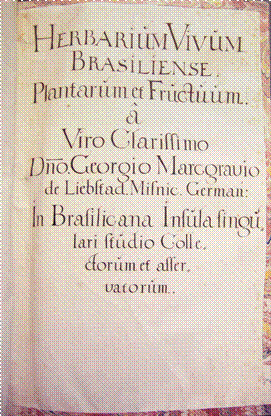 HERBARIŬM VIVŬM
BRASILIENSE.
Plantarŭm et Frŭctŭŭm.
à
Viro Clariſſimo
Dn̄o. Georgio Marcgravio
de Liebſtad. Miſnic. German:
In Braſilicana Inſŭla ſingŭ,
lari ſtŭdio Colle,
ctorŭm et aſſer,
vatorŭm..